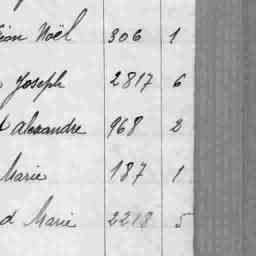 Noël 306 1
Joseph 2817 6
Alexandre 968 2
Marie 187 1
d Marie 2218 5